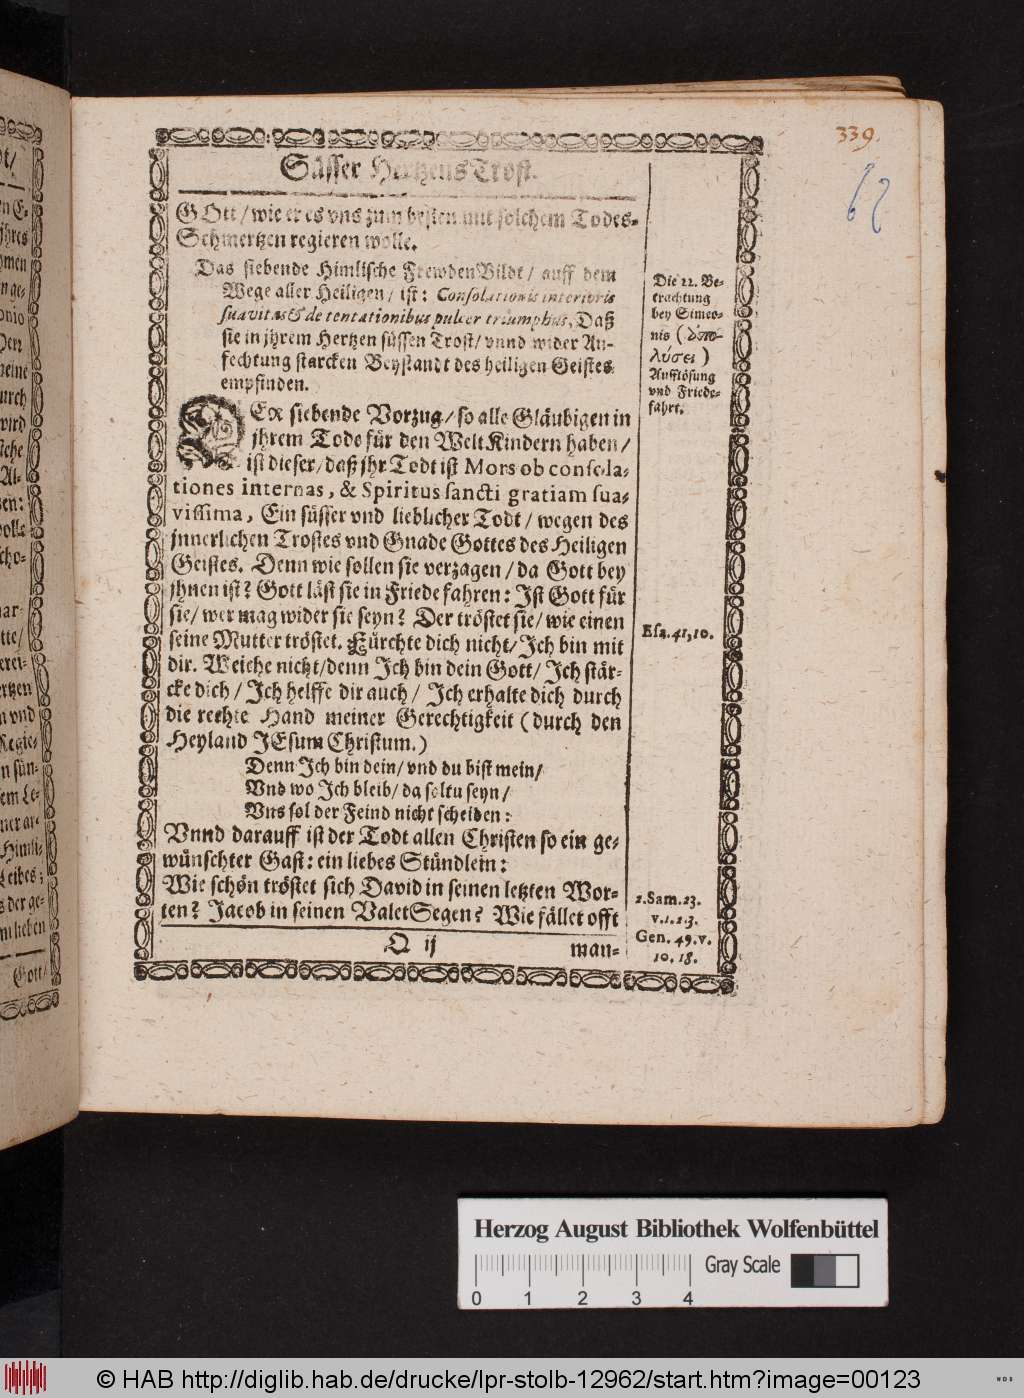 339.
62
Süsser Hertzens Trost.
GOtt / wie er es vns zum besten mit solchem Todes-
Schmertzen regieren wolle.
Das siebende Himlische FrewdenBildt / auff dem
Wege aller Heiligen / ist: Consolationis interioris
suavitas & de tentationibus pulcer triumphus, Daß
sie in jhrem Hertzen süssen Trost / vnnd wider An-
fechtung starcken Beystandt des heiligen Geistes
empfinden.
Die 22. Be-
trachtung
bey Simeo-
nis (ἀπο-
λύσει)
Aufflösung
vnd Friede-
fahrt.
DEr siebende Vorzug / so alle Gläubigen in
jhrem Tode für den WeltKindern haben /
ist dieser / daß jhr Todt ist Mors ob consola-
tiones internas, & Spiritus sancti gratiam sua-
vissima, Ein süsser vnd lieblicher Todt / wegen des
jnnerlichen Trostes vnd Gnade Gottes des Heiligen
Geistes. Denn wie sollen sie verzagen / da Gott bey
jhnen ist? Gott läst sie in Friede fahren: Ist Gott für
sie / wer mag wider sie seyn? Der tröstet sie / wie einen
seine Mutter tröstet. Fürchte dich nicht / Ich bin mit
dir. Weiche nicht / denn Ich bin dein Gott / Ich stär-
cke dich / Ich helffe dir auch / Ich erhalte dich durch
die rechte Hand meiner Gerechtigkeit (durch den
Heyland JEsum Christum.)
Esa. 41, 10.
Denn Ich bin dein / vnd du bist mein /
Vnd wo Ich bleib / da soltu seyn /
Vns sol der Feind nicht scheiden:
Vnnd darauff ist der Todt allen Christen so ein ge-
wünschter Gast: ein liebes Stündlein:
Wie schön tröstet sich David in seinen letzten Wor-
ten? Jacob in seinen ValetSegen? Wie fället offt
2. Sam. 23.
v. 1. 2. 3.
Gen. 49. v.
10. 18.
Q ij
man-
Gott /
Herzog August Bibliothek Wolfenbüttel
Gray Scale
0 1 2 3 4
© HAB http://diglib.hab.de/drucke/lpr-stolb-12962/start.htm?image=00123